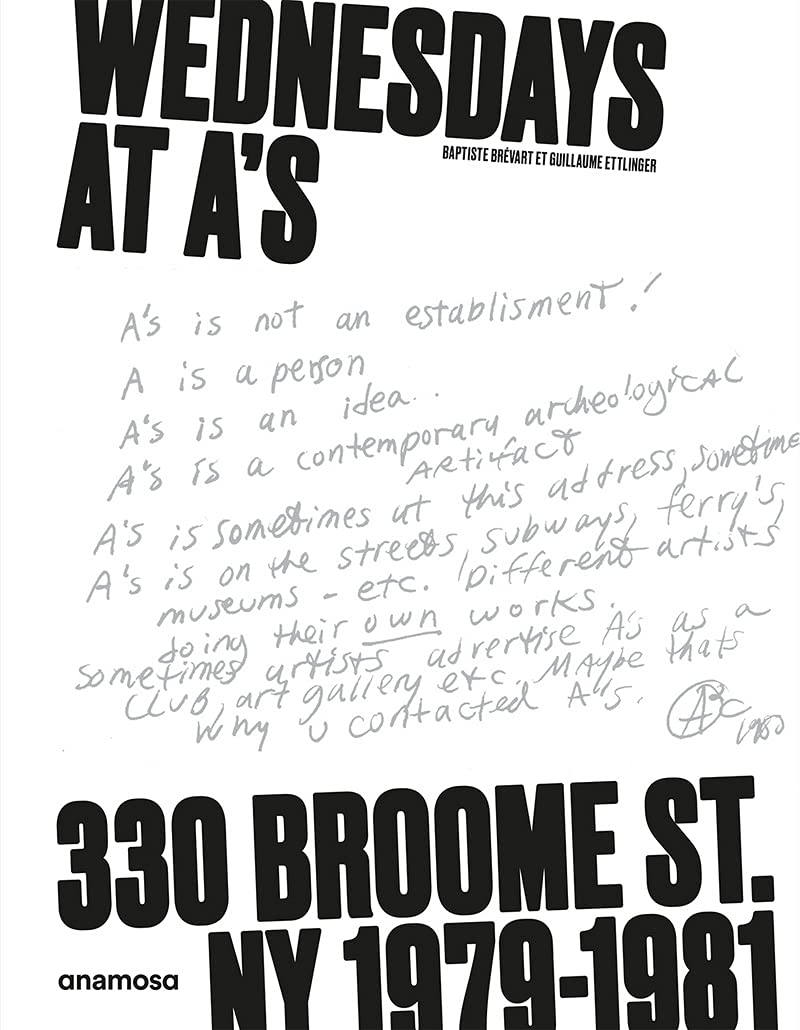 WEDNESDAYS
AT A'S
BAPTISTE BRÉVART ET GUILLAUME ETTLINGER
A's is not an establisment!
A is a person
A's is an idea..
A's is a contemporary archeological
Artifact
A's is sometimes at this address, sometime
A's is on the streets, subways, ferry's,
museums - etc. Different artists
doing their own works.
Sometimes artists advertise A's as a
club, art gallery etc. Maybe thats
why u contacted A's.
ABC
1980
330 BROOME ST.
NY 1979-1981
anamosa